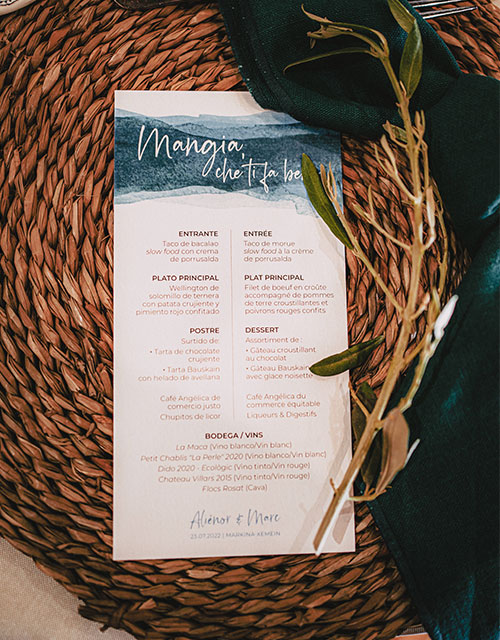 Mangia,
che ti fa be
ENTRANTE
Taco de bacalao
slow food con crema
de porrusalda
PLATO PRINCIPAL
Wellington de
solomillo de ternera
con patata crujiente y
pimiento rojo confitado
POSTRE
Surtido de:
• Tarta de chocolate
crujiente
• Tarta Bauskain
con helado de avellana
Café Angélica de
comercio justo
Chupitos de licor
ENTRÉE
Taco de morue
slow food à la crème
de porrusalda
PLAT PRINCIPAL
Filet de boeuf en croûte
accompagné de pommes
de terre croustillantes et
poivrons rouges confits
DESSERT
Assortiment de :
• Gâteau croustillant
au chocolat
• Gâteau Bauskain
avec glace noisette
Café Angélica du
commerce équitable
Liqueurs & Digestifs
BODEGA / VINS
La Maca (Vino blanco/Vin blanc)
Petit Chablis "La Perle" 2020 (Vino blanco/Vin blanc)
Dido 2020 - Ecològic (Vino tinto/Vin rouge)
Chateau Villars 2015 (Vino tinto/Vin rouge)
Flocs Rosat (Cava)
Aliénor & Marc
23.07.2022 | MARKINA-XEMEIN